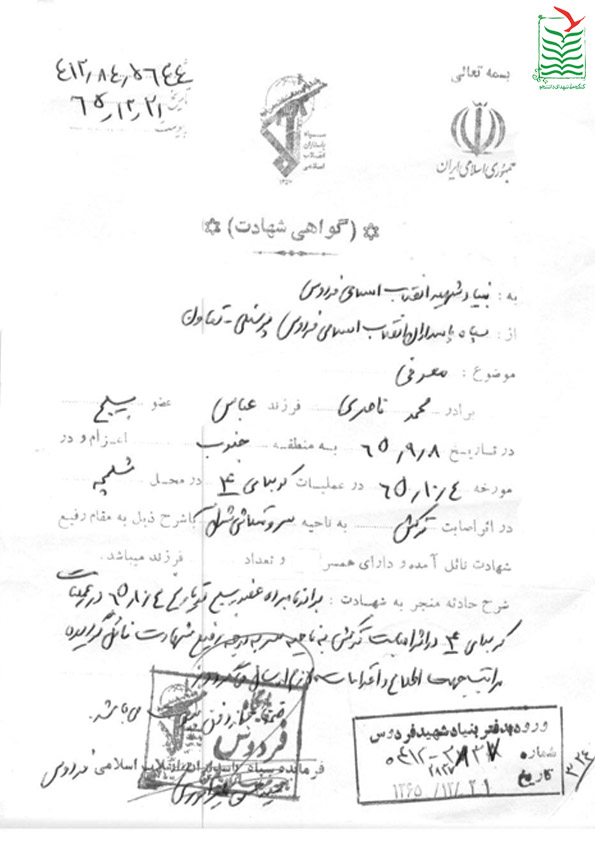 بسمه تعالی
جمهوری اسلامی ایران
سپاه
پاسداران
انقلاب
اسلامی
۴۱۲٫۸۴٫۵۶۴۴
تاریخ ۶۵٫۱۲٫۲۱
پیوست
(گواهی شهادت)
به : بنیاد شهید انقلاب اسلامی فردوس
از : سپاه پاسداران انقلاب اسلامی فردوس پرسنلی - تعاون
موضوع : معرفی
برادر محمد ناصری فرزند عباس عضو بسیج
در تاریخ ۶۵٫۹٫۸ به منطقه جنوب اعزام و در
مورخه ۶۵٫۱۰٫۴ در عملیات کربلای ۴ در محل شلمچه
در اثر اصابت ترکش به ناحیه سر با شرح ذیل به مقام رفیع
شهادت نائل آمده و دارای همسر و تعداد فرزند میباشد.
شرح حادثه منجر به شهادت : برادر نامبرده عضو بسیج در تاریخ ۶۵٫۱۰٫۴ در عملیات
کربلای ۴ در اثر اصابت ترکش به ناحیه سر به درجه رفیع شهادت نائل گردیده
مراتب جهت اطلاع و اقدامات لازم ارسال میگردد
می باشد.
فردوس
فرمانده سپاه پاسداران انقلاب اسلامی فردوس
ورود بدفتر بنیاد شهید فردوس
شماره
تاریخ ۱۳۶۵/۱۲/۲۱